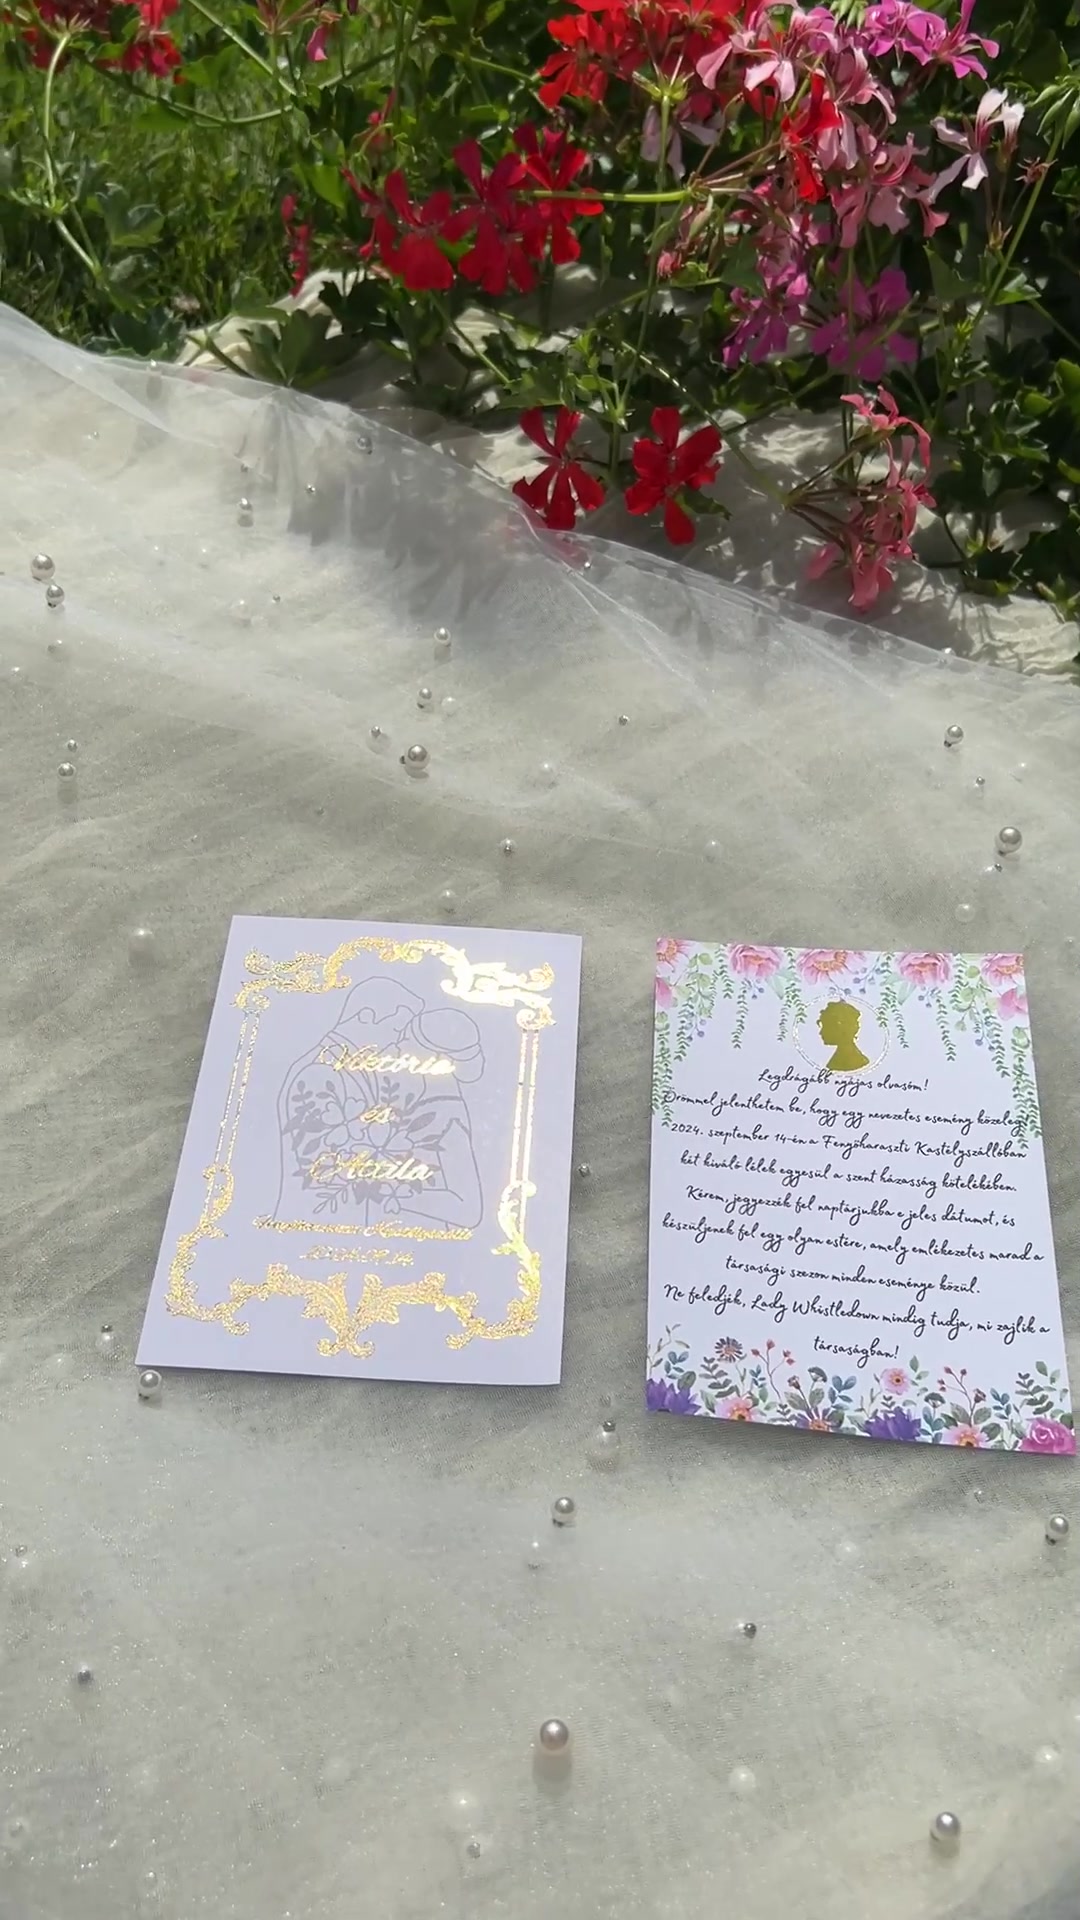 Viktória
és
Attila
Fenyőharaszt Kastélyszálló
2024.09.14.
Legdrágább nyájas olvasóm!
Örömmel jelenthetem be, hogy egy nevezetes esemény közeleg!
2024. szeptember 14-én a Fenyőharaszti Kastélyszállóban
két kiváló lélek egyesül a szent házasság kötelékében.
Kérem, jegyezzék fel naptárjukba e jeles dátumot, és
készüljenek fel egy olyan estére, amely emlékezetes marad a
társasági szezon minden eseménye közül.
Ne feledjék, Lady Whistledown mindig tudja, mi zajlik a
társaságban!